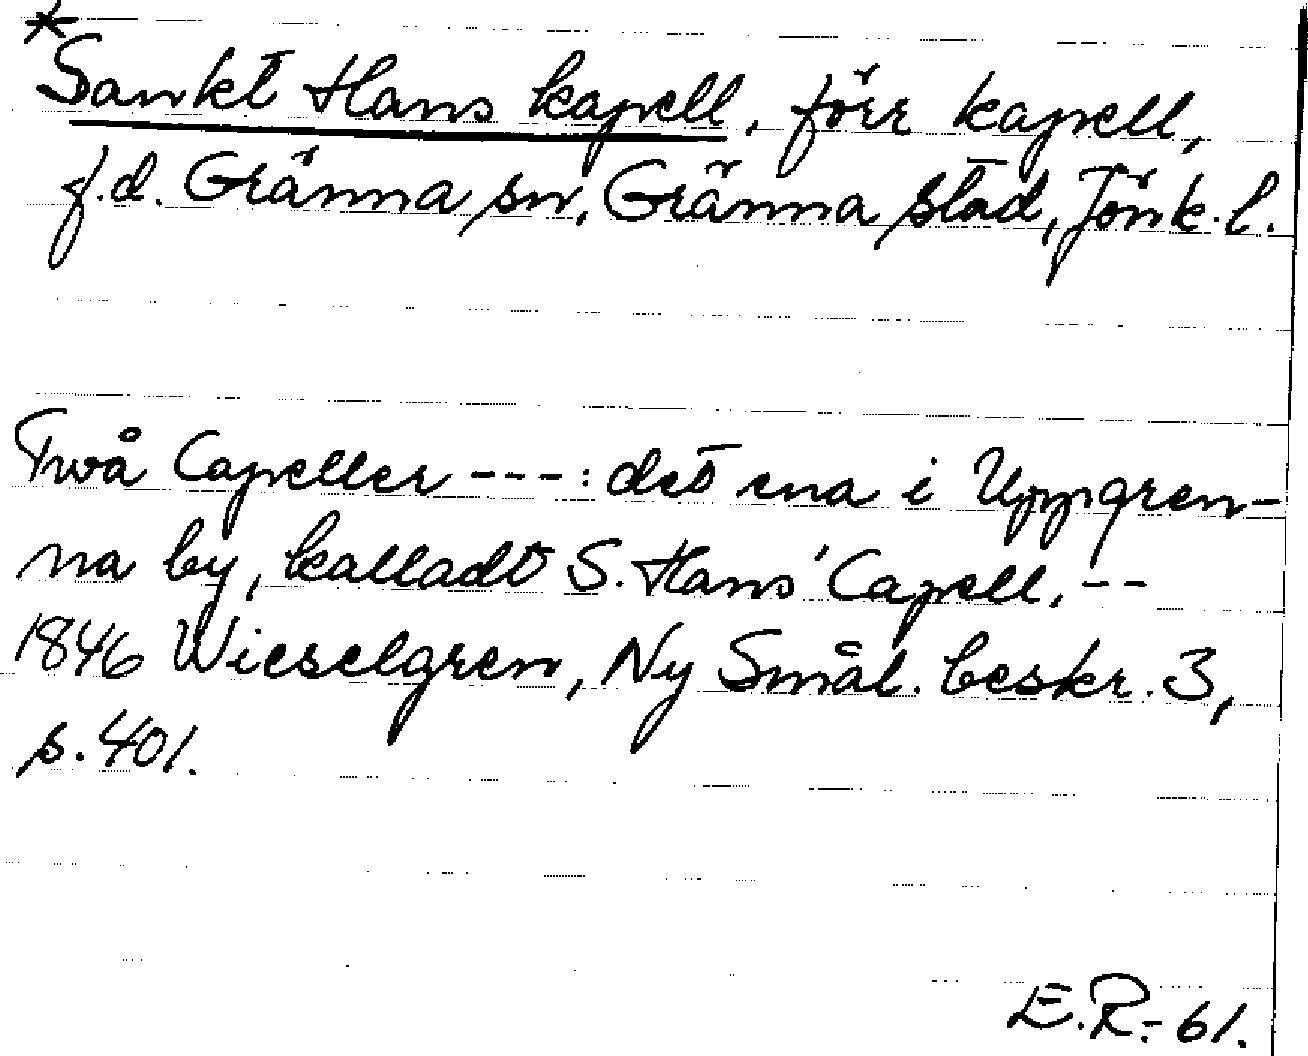 *
Sankt Hans kapell, förr kapell,
f.d. Gränna sn, Gränna stad, Jönk. l.
Twå Capeller ---: det ena i Uppgren-
na by, kalladt S. Hans' Capell, --
1846 Wieselgren, Ny Smål. beskr. 3,
s. 401.
E.R.- 61.